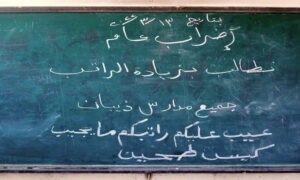 بتاريخ ١٣/٣/
إضراب عام
نطالب بزيادة الراتب
جميع مدارس ذيبان
عيب عليكم راتبكم ما يجيب
كيس طحين